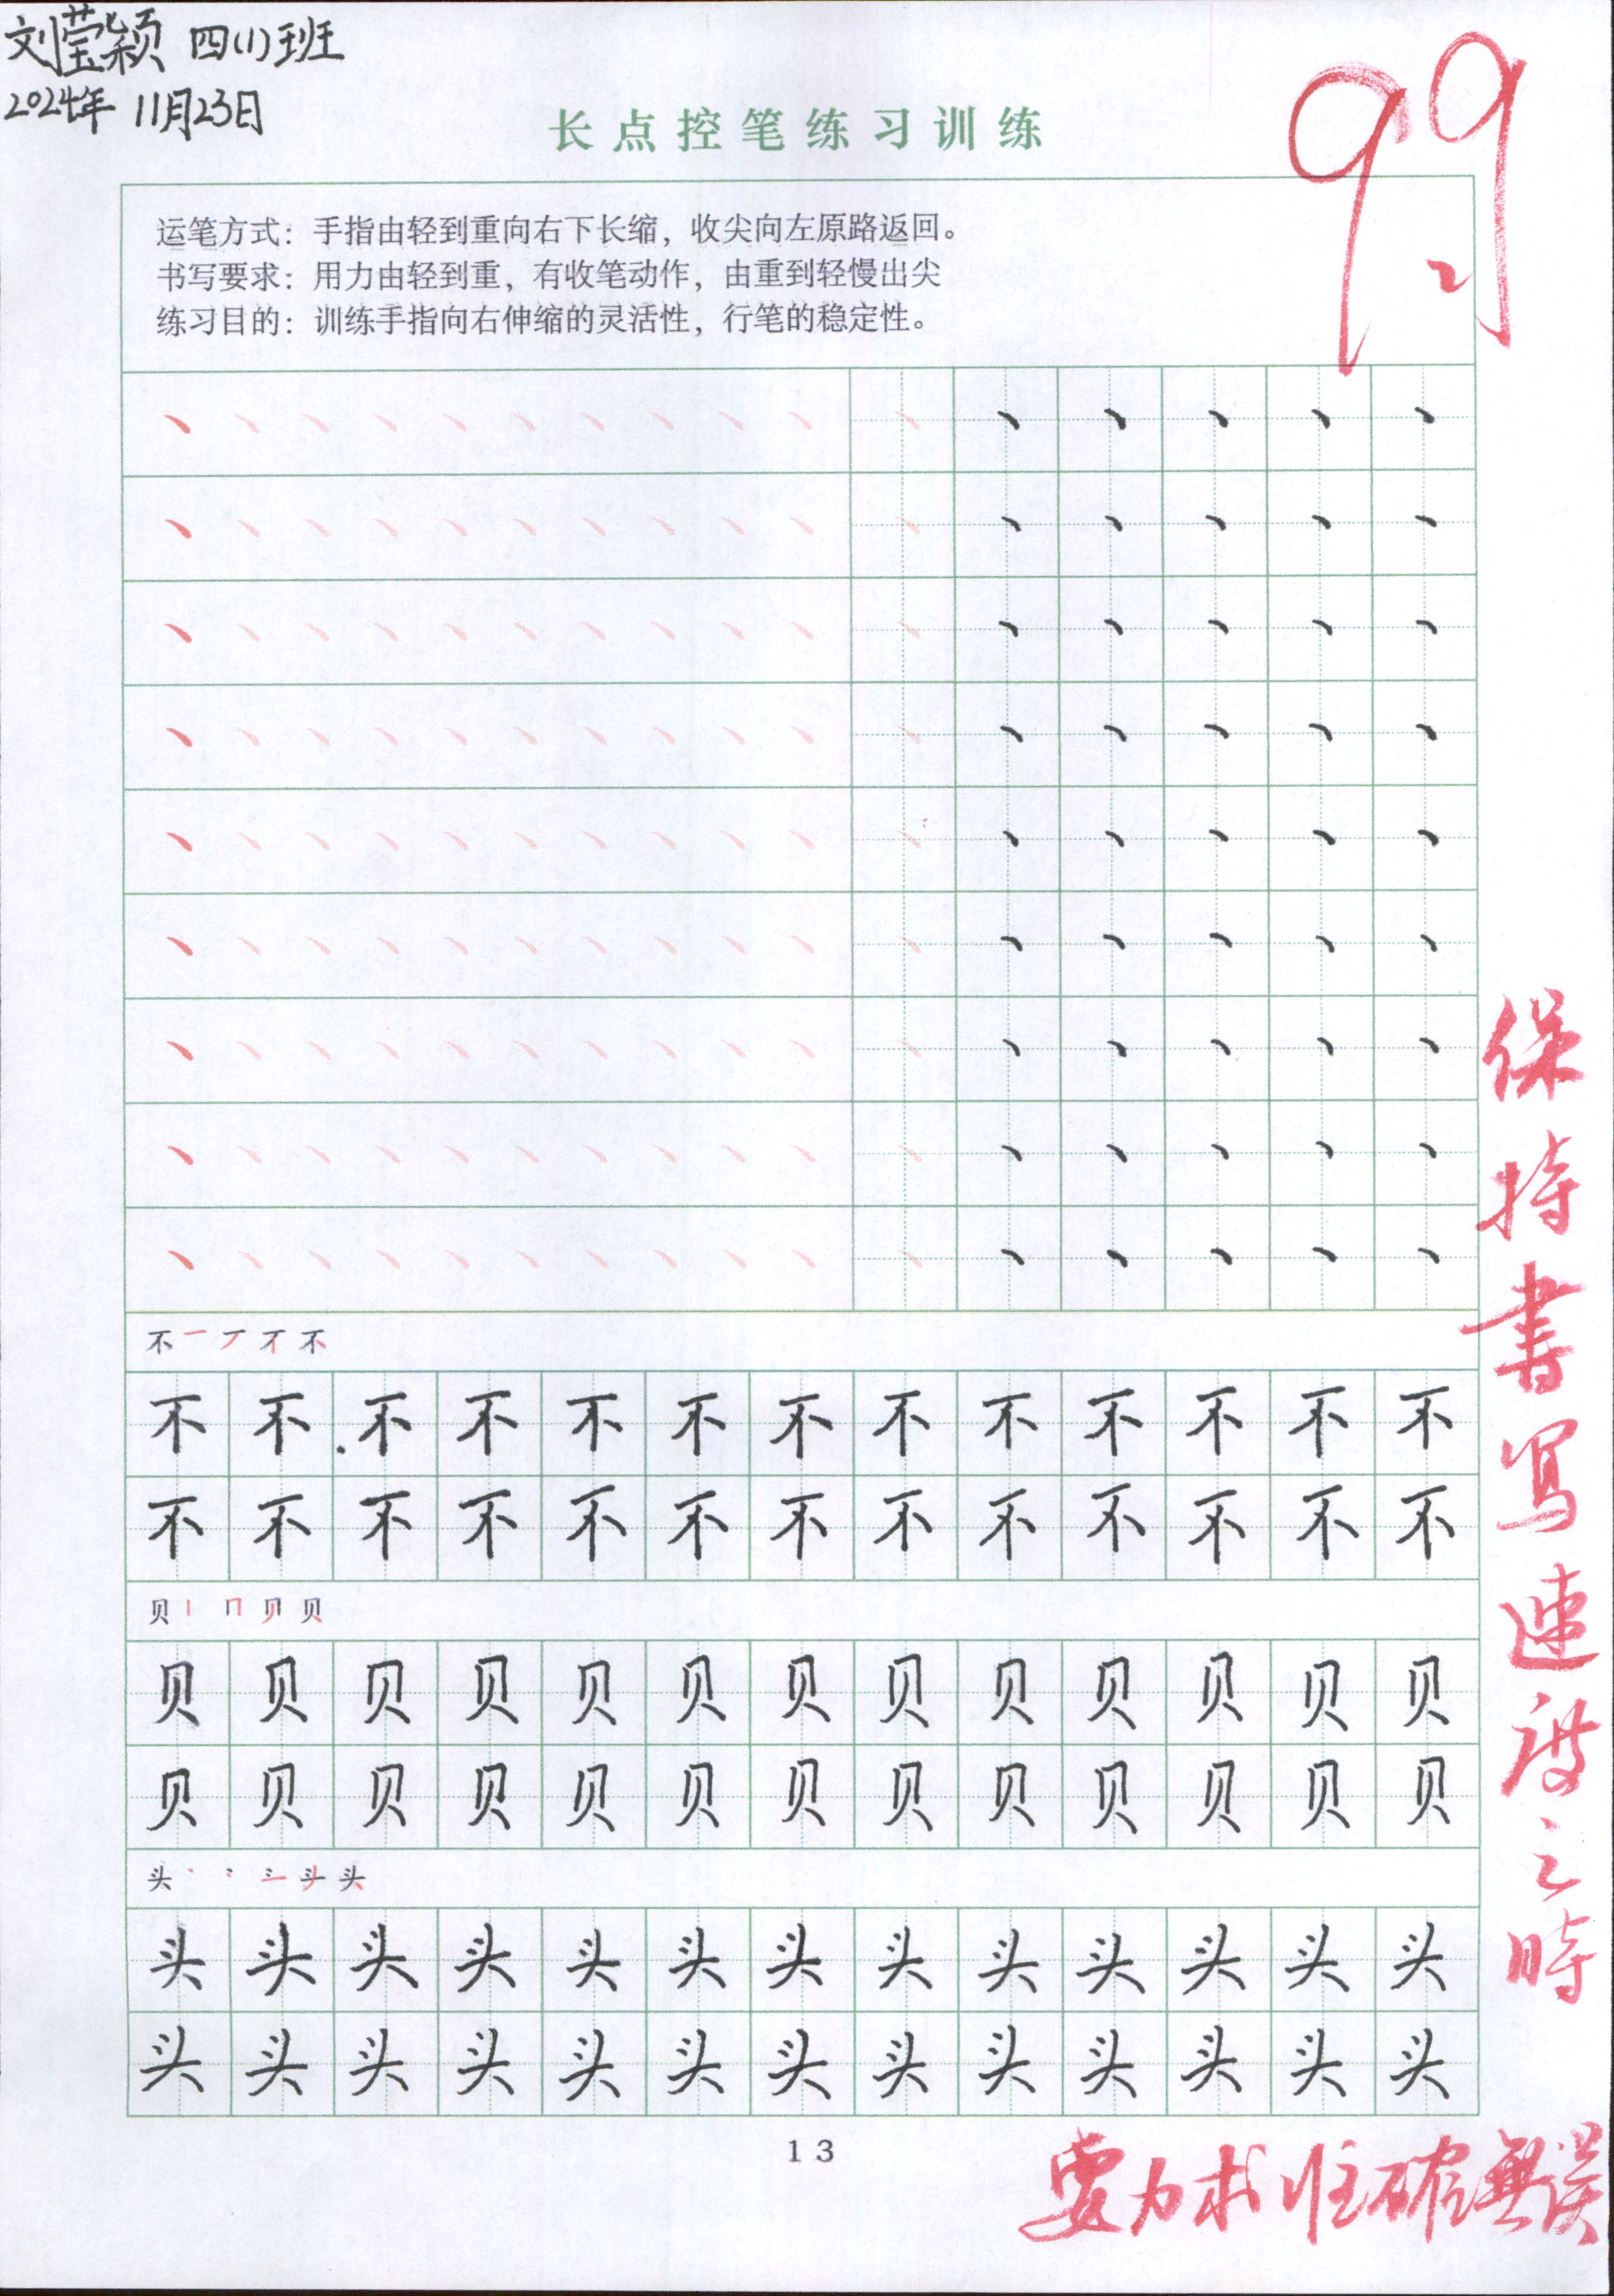 刘莹颖 四(1)班
2024年 11月23日
99
长点控笔练习训练
运笔方式：手指由轻到重向右下长缩，收尖向左原路返回。
书写要求：用力由轻到重，有收笔动作，由重到轻慢出尖
练习目的：训练手指向右伸缩的灵活性，行笔的稳定性。
不
不不不不不不不不不不不不不
不不不不不不不不不不不不不
贝
贝贝贝贝贝贝贝贝贝贝贝贝贝
贝贝贝贝贝贝贝贝贝贝贝贝贝
头
头头头头头头头头头头头头头
头头头头头头头头头头头头头
保持書寫速度之時
要力求准確無誤
13